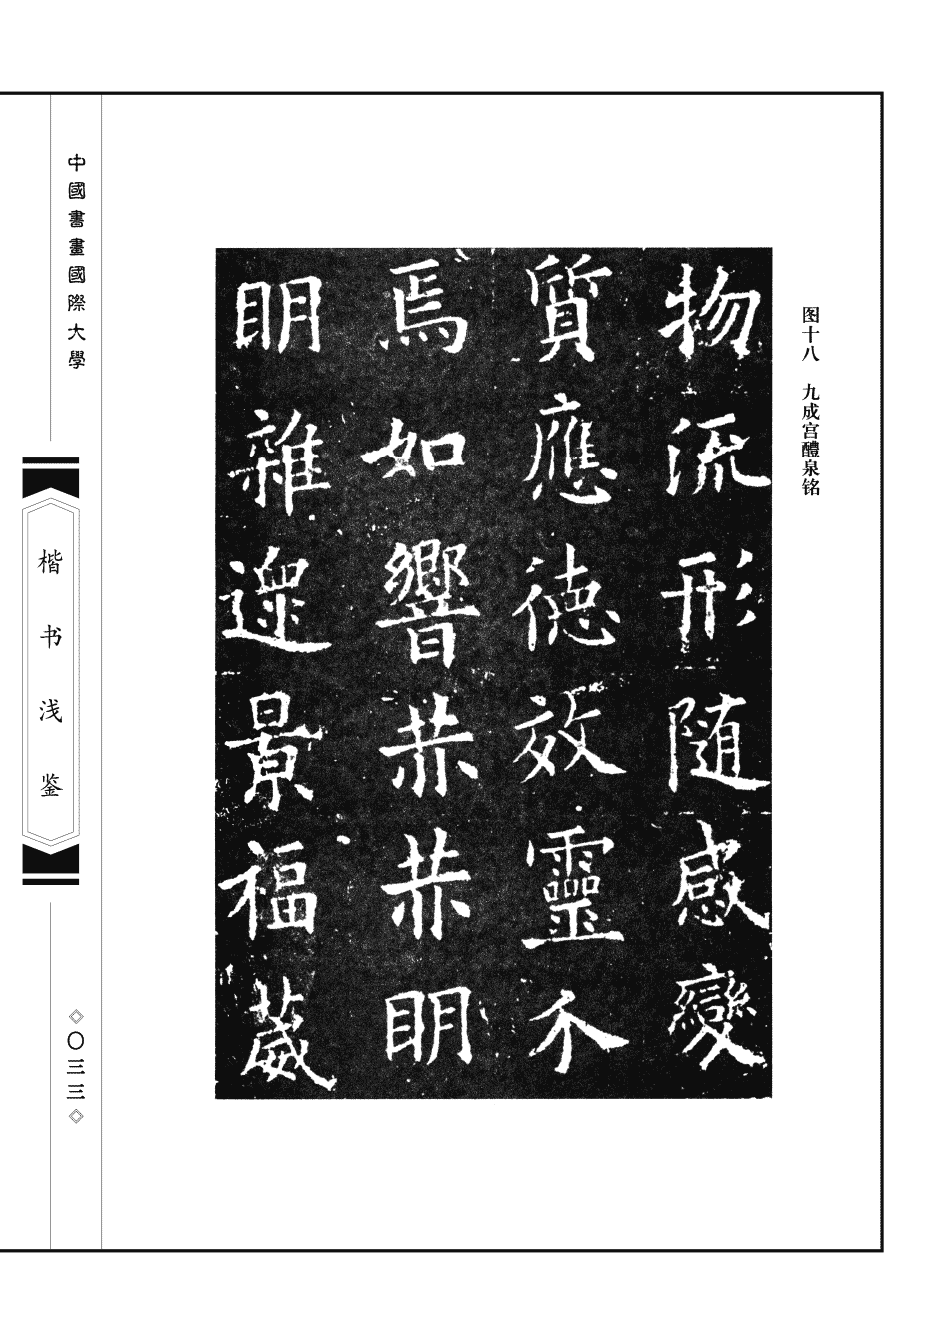 图十八 九成宫醴泉铭
物流形随感變
質應德效靈介
焉如響赫赫眀
眀雜遝景福葳
中國書畫國際大學
楷书浅鉴
〇三三